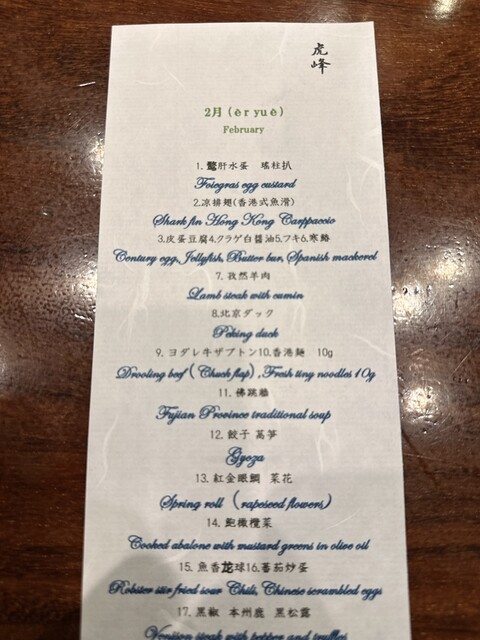 虎峰
2月(èr yuè)
February
1.鵞肝水蛋 瑤柱扒
Foiegras egg custard
2.凉拼翅(香港式魚滑)
Shark fin Hong Kong Carppaccio
3.皮蛋豆腐4.クラゲ白醤油5.フキ6.寒鰆
Century egg, Jellyfish, Butter bur, Spanish mackerel
7. 孜然羊肉
Lamb steak with cumin
8.北京ダック
Peking duck
9. ヨダレキザプトン10.香港麺 10g
Drooling beef (Chuck flap), Fresh tiny noodles 10g
11. 佛跳牆
Fujian Province traditional soup
12. 餃子 萵笋
Gyoza
13. 紅金眼鯛 菜花
Spring roll (rapeseed flowers)
14. 鮑橄欖菜
Cooked abalone with mustard greens in olive oil
15. 魚香龙球16.蕃茄炒蛋
Robster stir fried sour Chili, Chinese scrambled eggs
17. 黒椒 本州鹿 黒松露
Venison steak with pepper and truffles